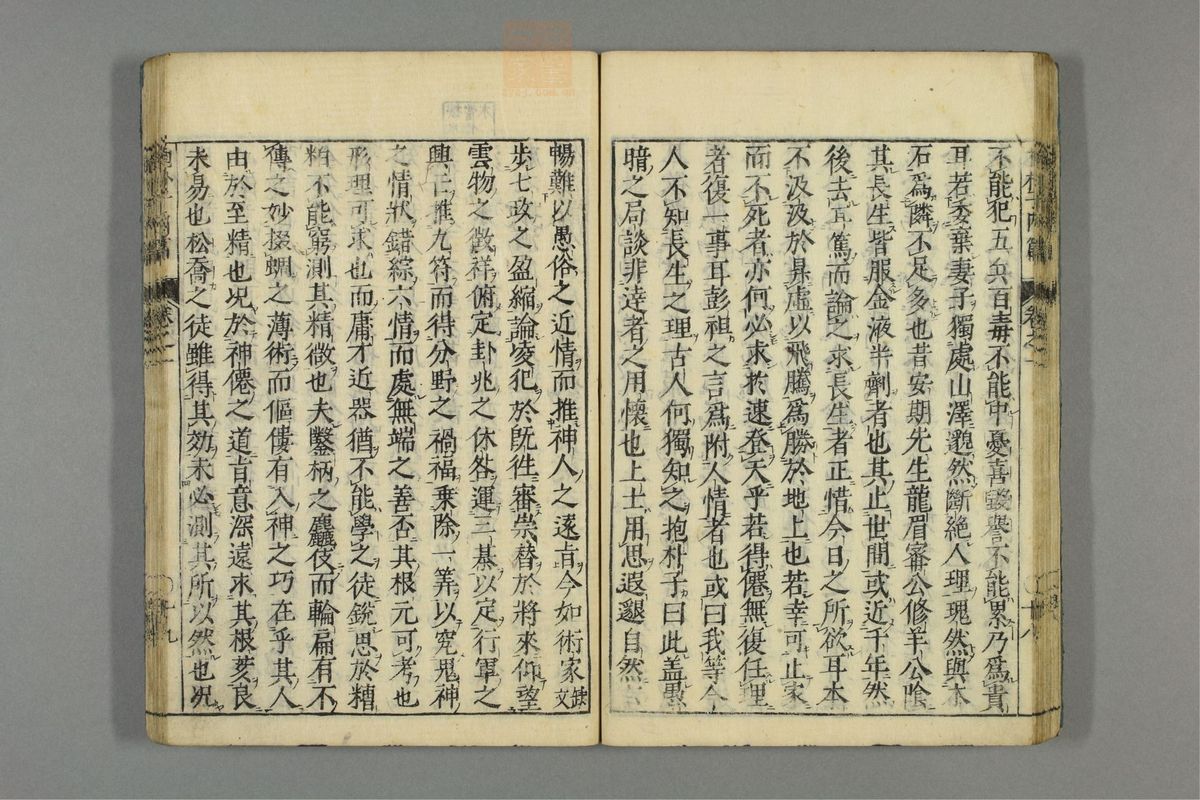 不能犯五兵百毒不能中憂喜毀譽不能累乃爲貴
耳若委棄妻子獨處山澤邈然斷絕人理瑰然與木
石爲隣不足多也昔安期先生龍眉甯公修羊公陰
其長生皆服金液半劑者也其止世間或近千年然
後去耳篤而論之求長生者正惜今日之所欲耳本
不汲汲於昇虛以飛騰爲勝於地上也若幸可止家
而不死者亦何必求於速登天乎若得僊無復任理
者復一事耳彭祖之言爲附人情者也或曰我等
人不知長生之理古人何獨知之抱朴子曰此盖愚
暗之局談非達者之用懷也上士用思遐邈自然
暢難以愚俗之近情而推神人之遠旨今如術家缺文
步七政之盈縮論凌犯於既往審崇替於將來仰望
雲物之徵祥俯定卦兆之休咎運三棊以定行軍之
興亡推九符而得分野之禍福乗除一筭以究鬼神
之情狀錯綜六情而處無端之善否其根元可考也
形理可求也而庸才近器猶不能學之徒銳思於糟
粕不能窮測其精微也夫鑿枘之麤伎而輪扁有不
傳之妙掇蜩之薄術而傴僂有入神之巧在乎其人
由於至精也况於神僊之道旨意深遠求其根荄良
未易也松喬之徒雖得其効未必測其所以然也况
卷之一
十八
卷之一
十九